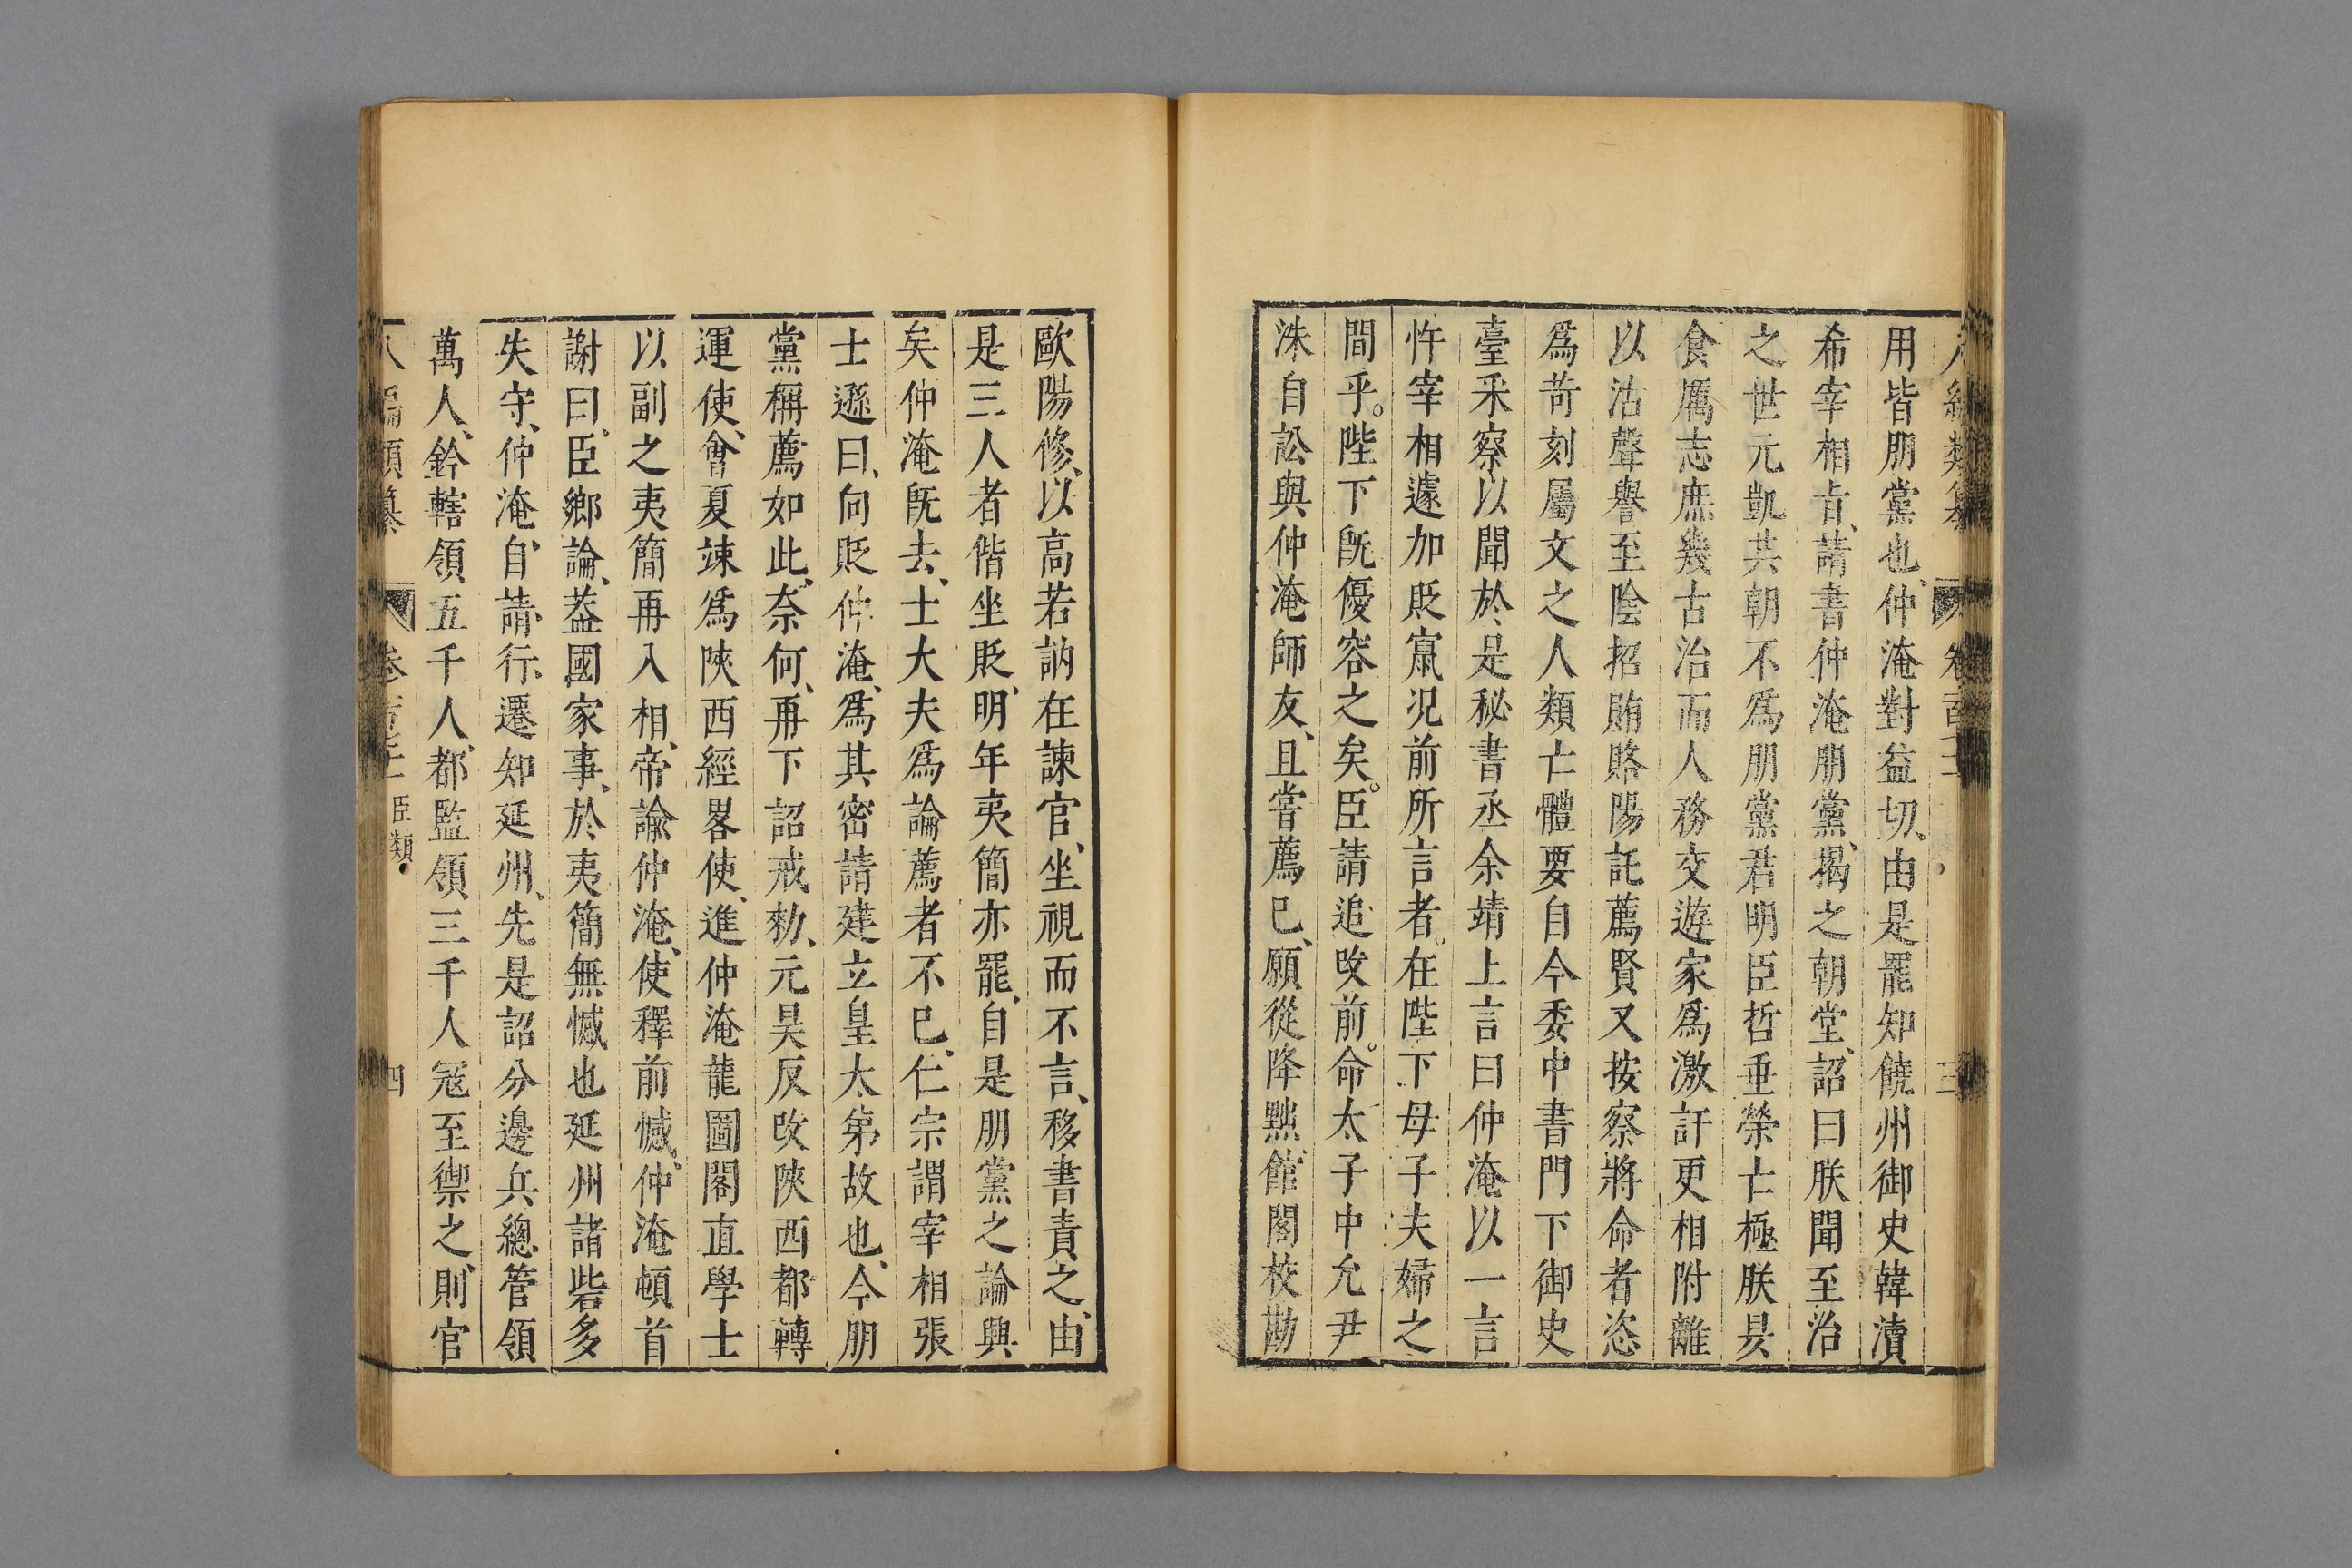 用皆朋黨也、仲淹對益切、由是罷知饒州御史韓瀆
希宰相㫖、請書仲淹朋黨、揭之朝堂、詔曰朕聞至治
之世元凱共朝不爲朋黨君明臣哲垂榮亡極朕昃
食厲志庶幾古治而人務交遊家爲激訐更相附離
以沽聲譽至陰招賄賂陽託薦賢又按察將命者恣
爲苛刻屬文之人類亡體要自今委中書門下御史
臺采察以聞於是秘書丞余靖上言曰仲淹以一言
忤宰相遽加貶竄况前所言者。在陛下母子夫婦之
間乎。陛下旣優容之矣。臣請追改前。命太子中允尹
洙自訟與仲淹師友、且嘗薦已、願從降黜、館閣校勘
歐陽修、以高若訥在諫官、坐視而不言、移書責之、由
是三人者偕坐貶、明年夷簡亦罷、自是朋黨之論興
矣仲淹旣去、士大夫爲論薦者不已、仁宗謂宰相張
士遜曰、向貶仲淹、爲其密請建立皇太第故也、今朋
黨稱薦如此、奈何、再下詔戒勑、元昊反改陝西都轉
運使、會夏竦爲陝西經畧使、進仲淹龍圖閣直學士
以副之夷簡再入相、帝諭仲淹、使釋前憾、仲淹頓首
謝曰、臣鄉論、葢國家事、於夷簡無憾也延州諸砦多
失守、仲淹、自請行、遷知延州、先是詔分邊兵總管領
萬人、鈐轄領五千人、都監領三千人冦至禦之、則官
八編類纂 卷 臣類 四